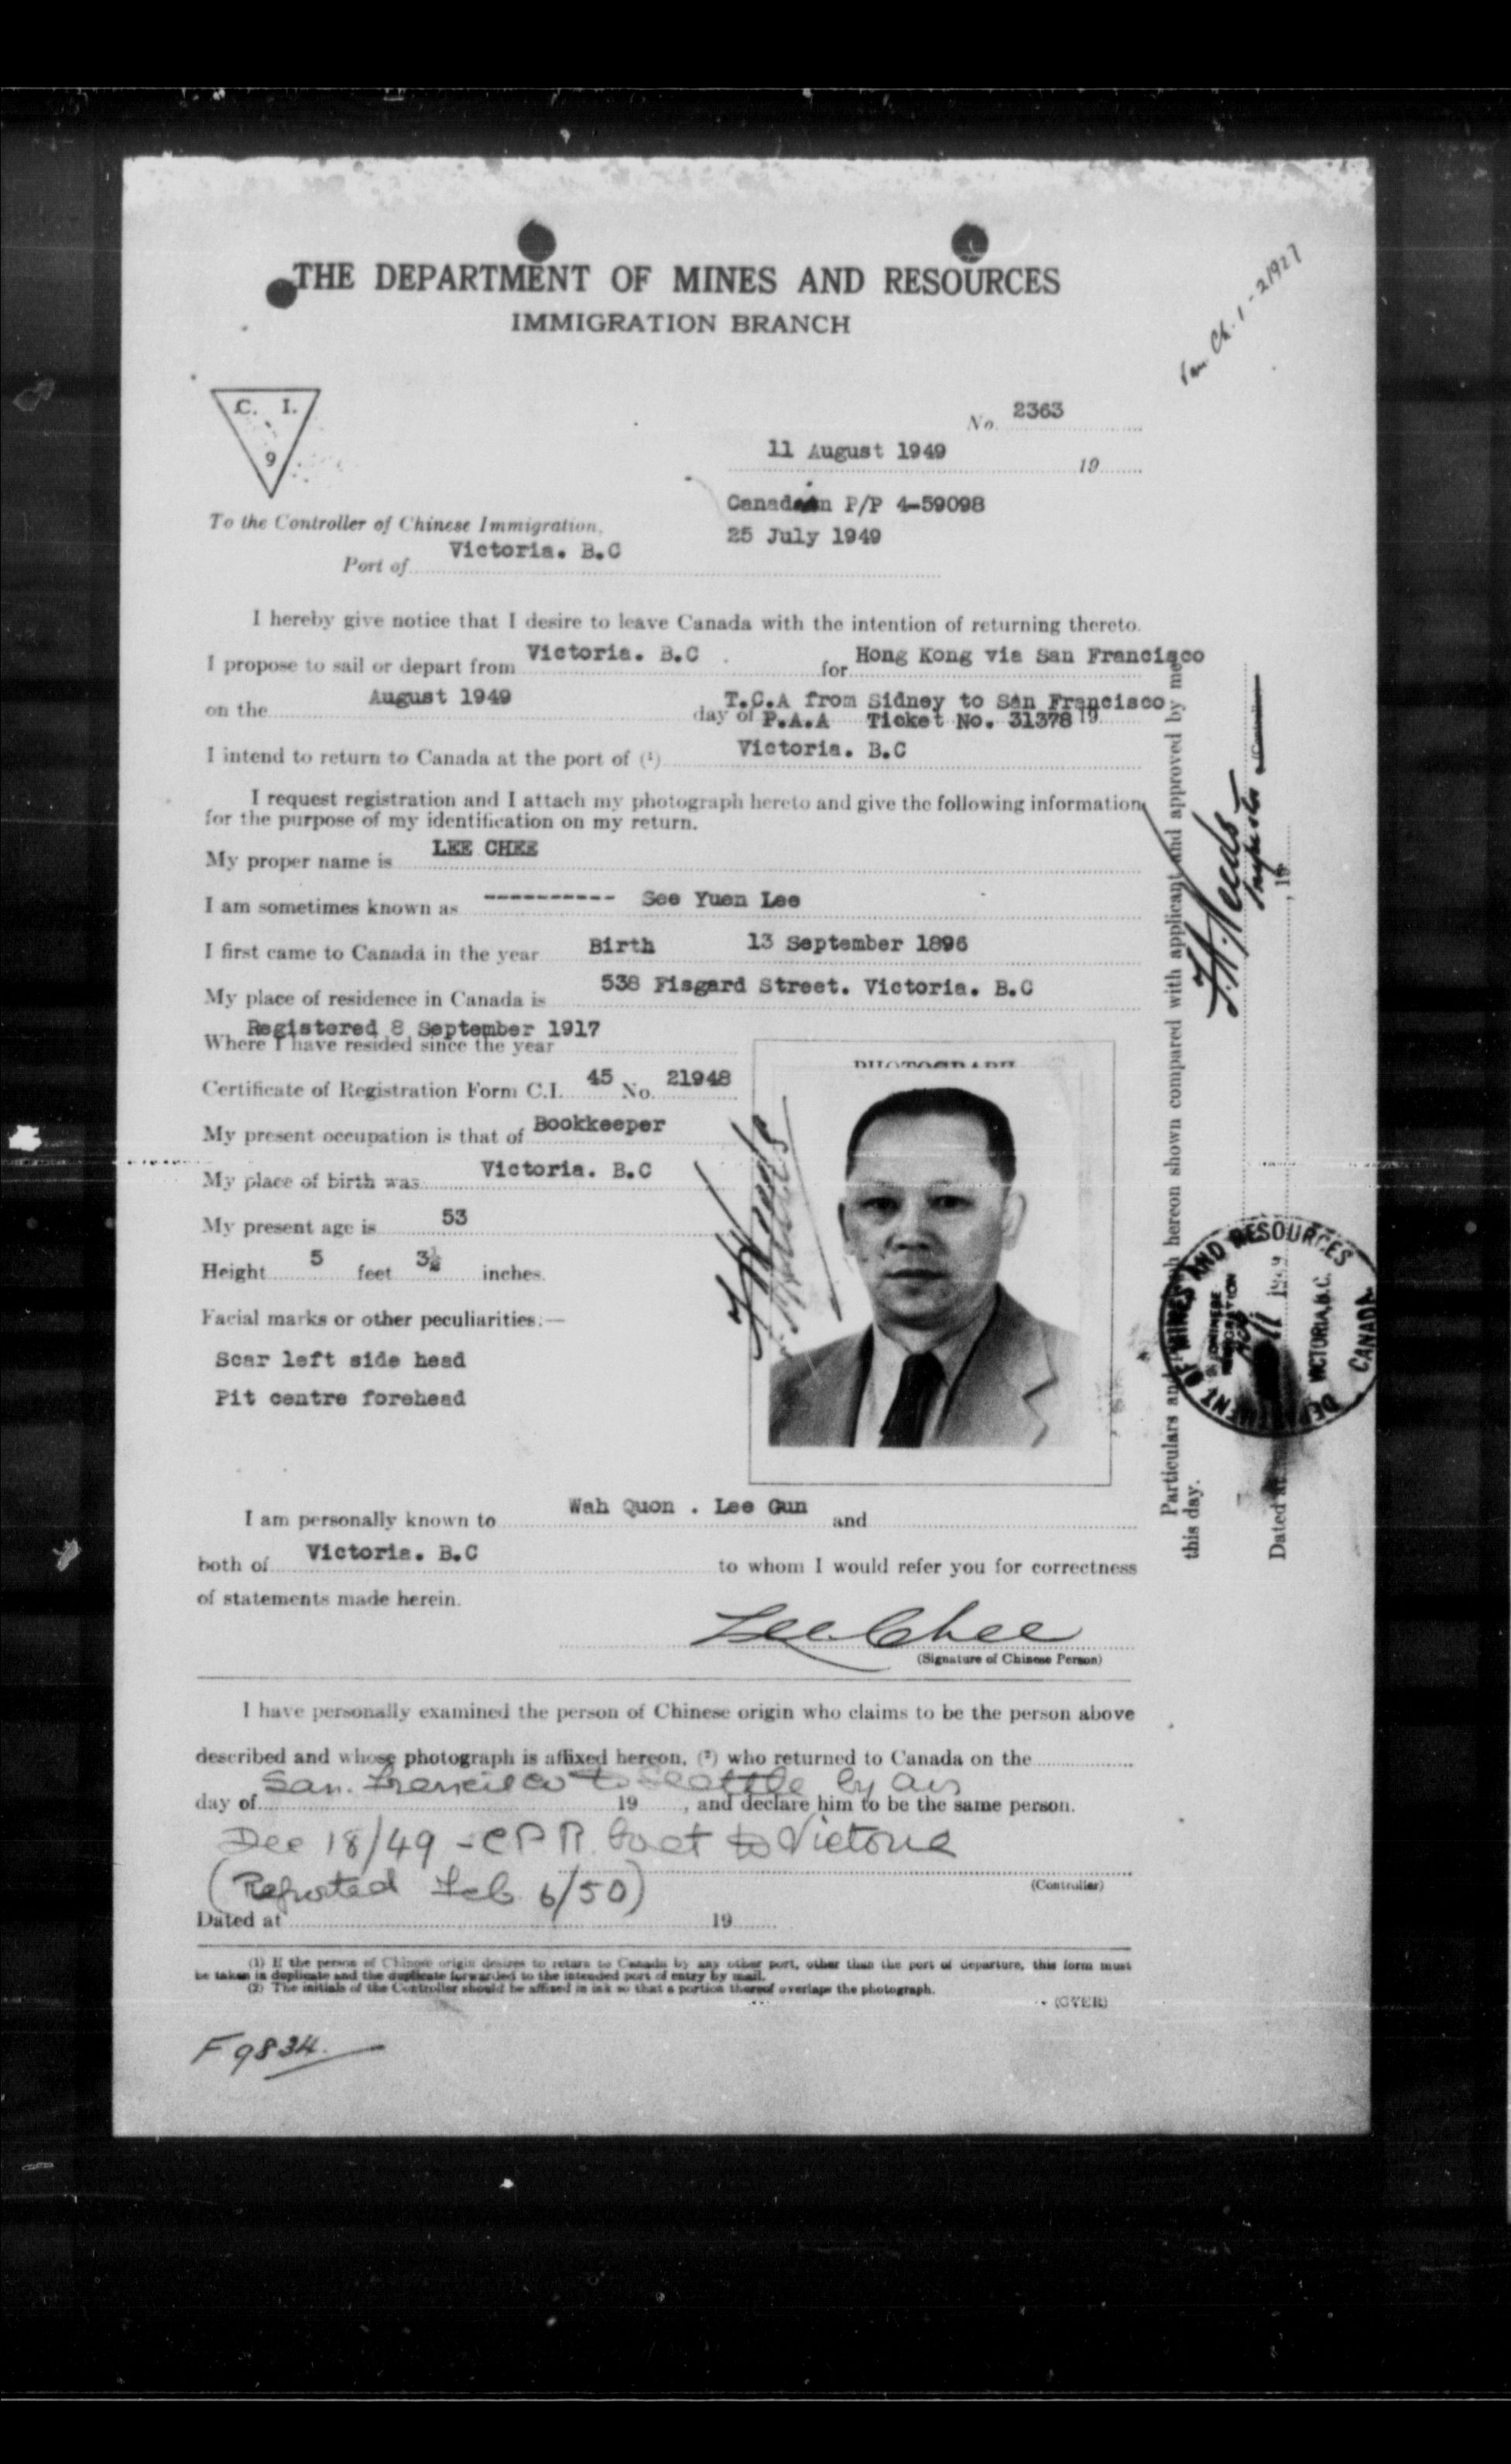 THE DEPARTMENT OF MINES AND RESOURCES
IMMIGRATION BRANCH
C. I.
9
No. 2363
11 August 1949 19
Canadian P/P 4-59098
25 July 1949
To the Controller of Chinese Immigration,
Port of Victoria. B.C
I hereby give notice that I desire to leave Canada with the intention of returning thereto.
I propose to sail or depart from Victoria. B.C for Hong Kong via San Francisco
on the August 1949 day of T.C.A from Sidney to San Francisco
P.A.A Ticket No. 31378 19
I intend to return to Canada at the port of (¹) Victoria. B.C
I request registration and I attach my photograph hereto and give the following information
for the purpose of my identification on my return.
My proper name is LEE CHEE
I am sometimes known as ---------- See Yuen Lee
I first came to Canada in the year Birth 13 September 1896
My place of residence in Canada is 538 Fisgard Street. Victoria. B.C
Registered 8 September 1917
Where I have resided since the year
Certificate of Registration Form C.I. 45 No. 21948
My present occupation is that of Bookkeeper
My place of birth was Victoria. B.C
My present age is 53
Height 5 feet 3½ inches.
Facial marks or other peculiarities:—
Scar left side head
Pit centre forehead
PHOTOGRAPH
I am personally known to Wah Quon . Lee Gun and
both of Victoria. B.C to whom I would refer you for correctness
of statements made herein.
Lee Chee
(Signature of Chinese Person)
I have personally examined the person of Chinese origin who claims to be the person above
described and whose photograph is affixed hereon, (²) who returned to Canada on the
San. Francisco to Seattle by air
day of 19 , and declare him to be the same person.
Dec 18/49 - CPR. boat to Victoria
(Controller)
(Reported Feb. 6/50)
Dated at 19
(1) If the person of Chinese origin desires to return to Canada by any other port, other than the port of departure, this form must
be taken in duplicate and the duplicate forwarded to the intended port of entry by mail.
(2) The initials of the Controller should be affixed in ink so that a portion thereof overlaps the photograph.
(OVER)
F 9834.
Particulars and hereon shown compared with applicant and approved by me
this day.
Dated at , 19
DEPARTMENT OF MINES AND RESOURCES
CANADA
VICTORIA, B.C.
Ch. 1 - 21927